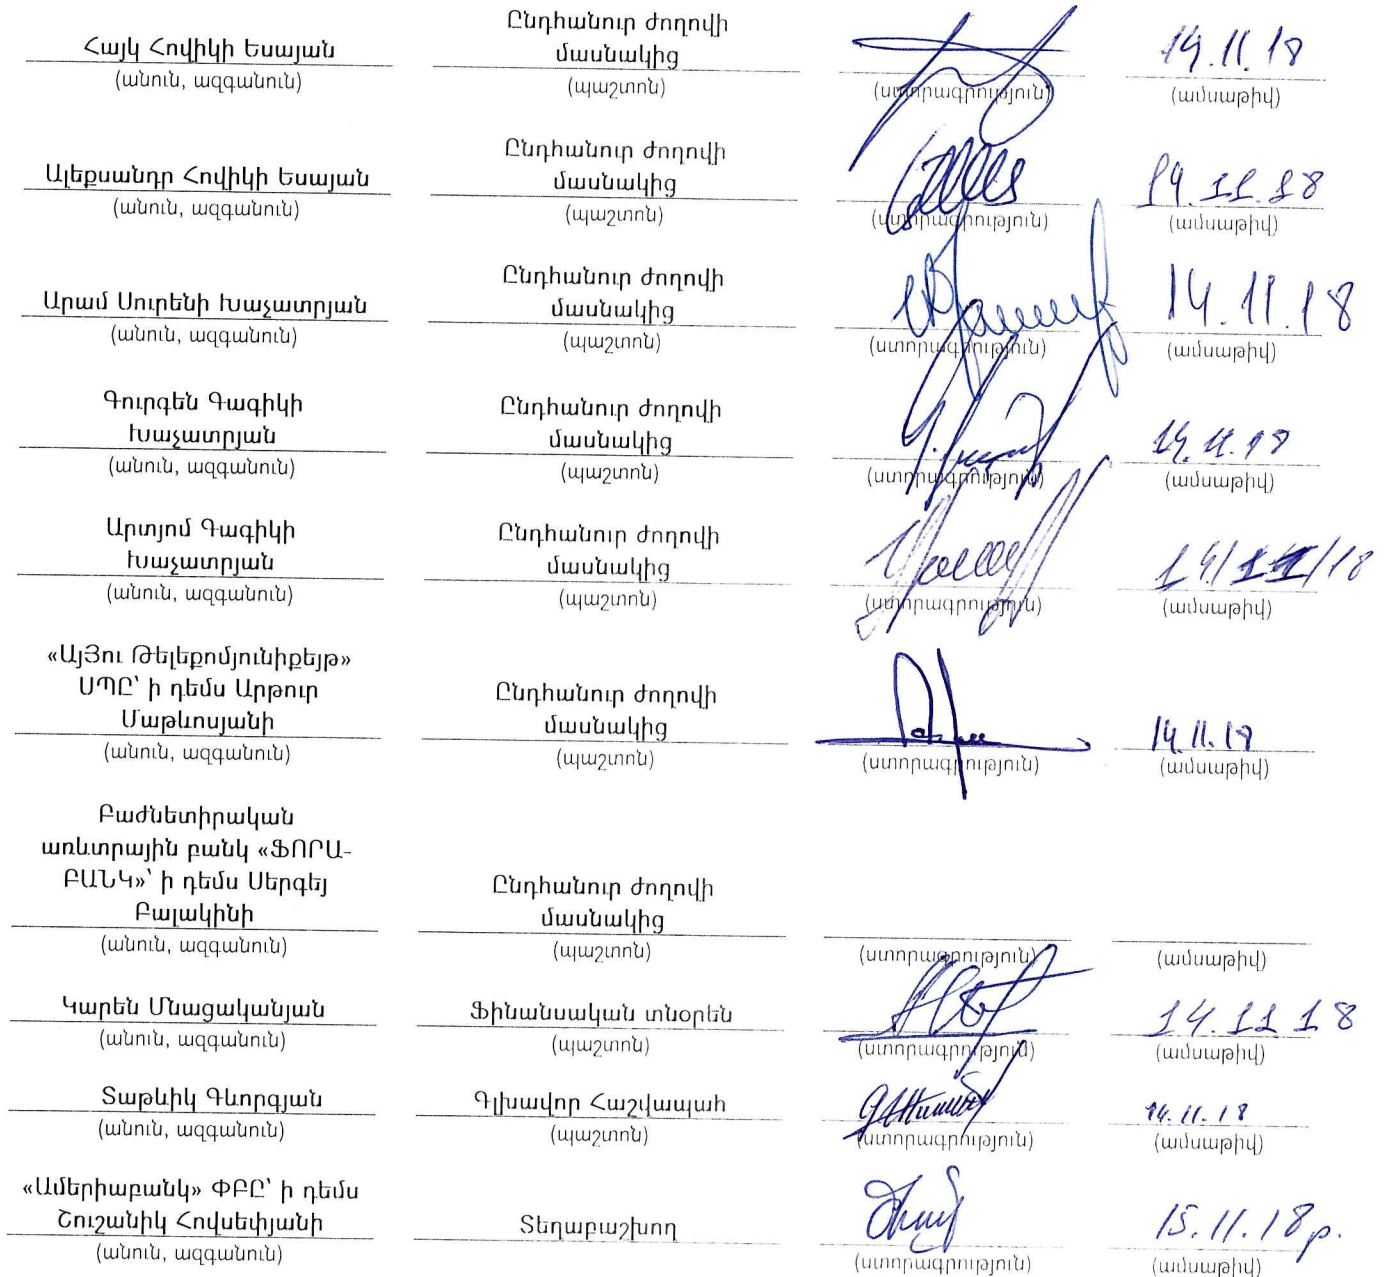 Հայկ Հովիկի Եսայան
(անուն, ազգանուն)
Ընդհանուր ժողովի
մասնակից
(պաշտոն)
(ստորագրություն)
14.11.18
(ամսաթիվ)
Ալեքսանդր Հովիկի Եսայան
(անուն, ազգանուն)
Ընդհանուր ժողովի
մասնակից
(պաշտոն)
(ստորագրություն)
14.11.18
(ամսաթիվ)
Արամ Սուրենի Խաչատրյան
(անուն, ազգանուն)
Ընդհանուր ժողովի
մասնակից
(պաշտոն)
(ստորագրություն)
14.11.18
(ամսաթիվ)
Գուրգեն Գագիկի
Խաչատրյան
(անուն, ազգանուն)
Ընդհանուր ժողովի
մասնակից
(պաշտոն)
(ստորագրություն)
14.11.18
(ամսաթիվ)
Արտյոմ Գագիկի
Խաչատրյան
(անուն, ազգանուն)
Ընդհանուր ժողովի
մասնակից
(պաշտոն)
(ստորագրություն)
14/11/18
(ամսաթիվ)
«ԱյՅու Թելեքոմյունիքեյթ»
ՍՊԸ՝ ի դեմս Արթուր
Մաթևոսյանի
(անուն, ազգանուն)
Ընդհանուր ժողովի
մասնակից
(պաշտոն)
(ստորագրություն)
14.11.18
(ամսաթիվ)
Բաժնետիրական
առևտրային բանկ «ՖՈՐԱ-
ԲԱՆԿ»՝ ի դեմս Սերգեյ
Բալակինի
(անուն, ազգանուն)
Ընդհանուր ժողովի
մասնակից
(պաշտոն)
(ստորագրություն)
(ամսաթիվ)
Կարեն Մնացականյան
(անուն, ազգանուն)
Ֆինանսական տնօրեն
(պաշտոն)
(ստորագրություն)
14.11 18
(ամսաթիվ)
Տաթևիկ Գևորգյան
(անուն, ազգանուն)
Գլխավոր Հաշվապահ
(պաշտոն)
(ստորագրություն)
14.11.18
(ամսաթիվ)
«Ամերիաբանկ» ՓԲԸ՝ ի դեմս
Շուշանիկ Հովսեփյանի
(անուն, ազգանուն)
Տեղաբաշխող
(ստորագրություն)
15.11.18թ.
(ամսաթիվ)